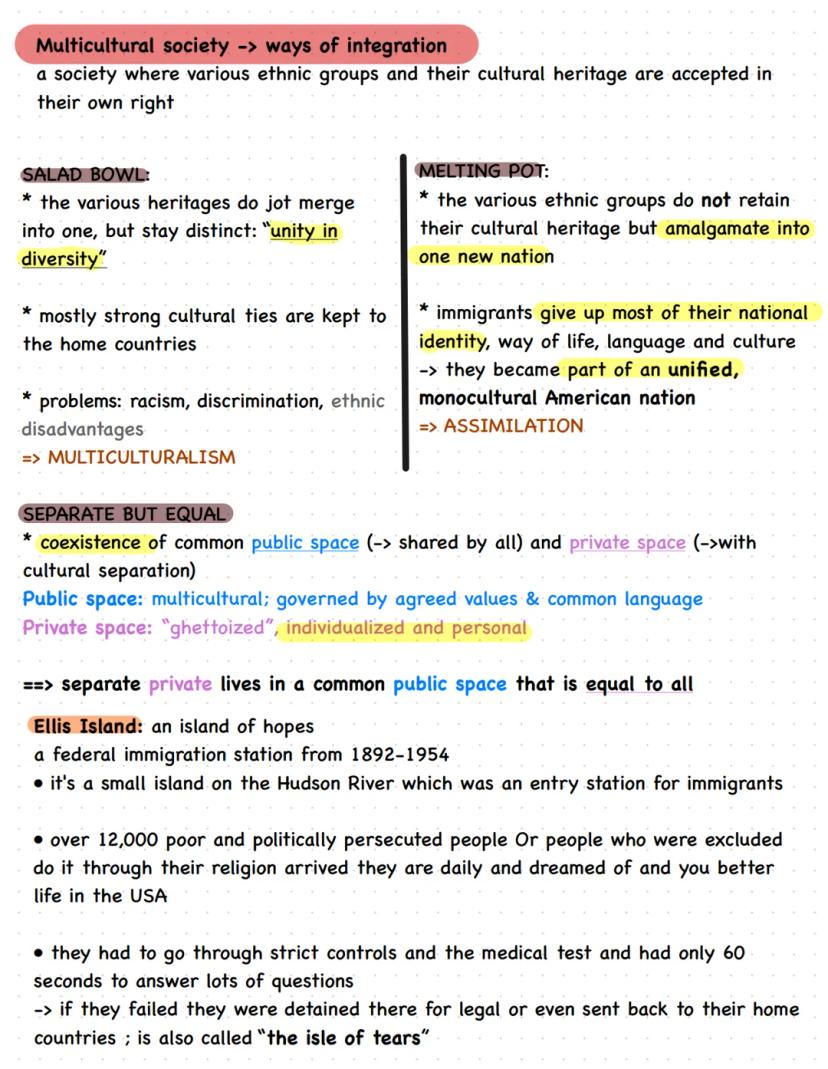 Multicultural society -> ways of integration
a society where various ethnic groups and their cultural heritage are accepted in
their own right
SALAD BOWL:
* the various heritages do jot merge
into one, but stay distinct: “unity in
diversity”
* mostly strong cultural ties are kept to
the home countries
* problems: racism, discrimination, ethnic
disadvantages
=> MULTICULTURALISM
MELTING POT:
* the various ethnic groups do not retain
their cultural heritage but amalgamate into
one new nation
* immigrants give up most of their national
identity, way of life, language and culture
-> they became part of an unified,
monocultural American nation
=> ASSIMILATION
SEPARATE BUT EQUAL
* coexistence of common public space (-> shared by all) and private space (->with
cultural separation)
Public space: multicultural; governed by agreed values & common language
Private space: “ghettoized”, individualized and personal
==> separate private lives in a common public space that is equal to all
Ellis Island: an island of hopes
a federal immigration station from 1892-1954
• it's a small island on the Hudson River which was an entry station for immigrants
• over 12,000 poor and politically persecuted people Or people who were excluded
do it through their religion arrived they are daily and dreamed of and you better
life in the USA
• they had to go through strict controls and the medical test and had only 60
seconds to answer lots of questions
-> if they failed they were detained there for legal or even sent back to their home
countries ; is also called “the isle of tears”